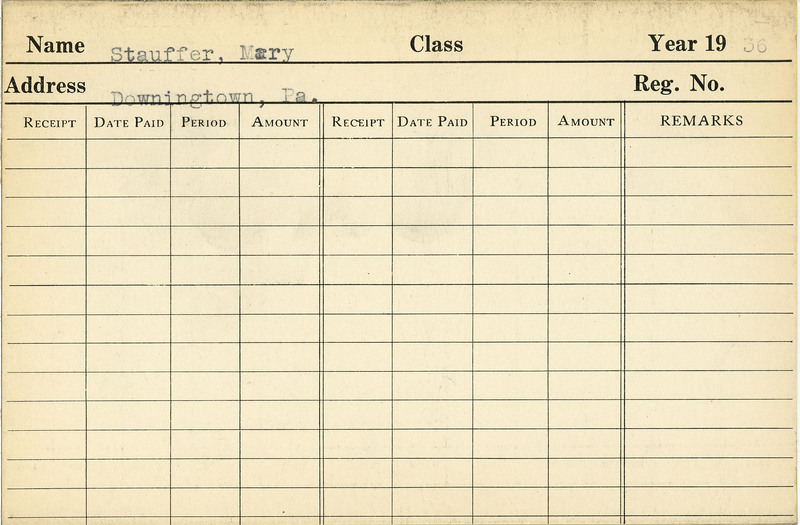 Name Stauffer, Mary Class Year 19 36
Address Downingtown, Pa. Reg. No.
RECEIPT DATE PAID PERIOD AMOUNT RECEIPT DATE PAID PERIOD AMOUNT REMARKS